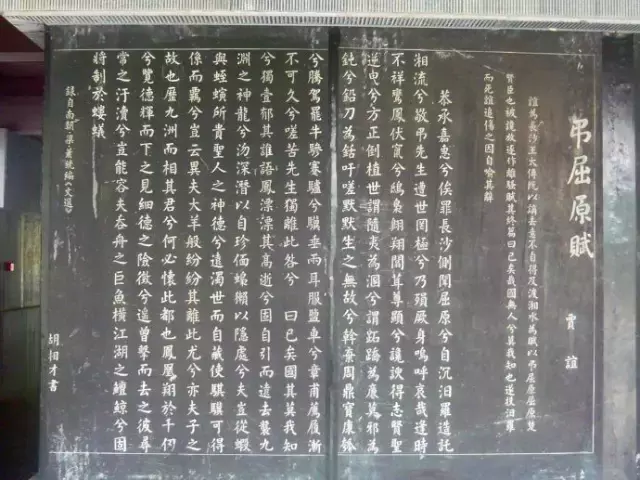 弔屈原賦
賈誼
誼為長沙王太傅既以謫去意不自得及渡湘水為賦以弔屈原屈原楚
賢臣也被讒放逐作離騷賦其終篇曰已矣哉國無人兮莫我知也遂投汨羅
而死誼追傷之因自喻其辭
恭承嘉惠兮俟罪長沙側聞屈原兮自沉汨羅造託
湘流兮敬弔先生遭世罔極兮乃殞厥身嗚呼哀哉逢時
不祥鸞鳳伏竄兮鴟梟翱翔闒茸尊顯兮讒諛得志賢聖
逆曳兮方正倒植世謂隨夷為溷兮謂跖蹻為廉莫邪為
鈍兮鉛刀為銛吁嗟默默生之無故兮斡棄周鼎寶康瓠
兮騰駕罷牛驂蹇驢兮驥垂兩耳服鹽車兮章甫薦履漸
不可久兮嗟苦先生獨離此咎兮 曰已矣國其莫我知
兮獨壹郁其誰語鳳漂漂其高逝兮固自引而遠去襲九
淵之神龍兮沕深潛以自珍偭蟂獺以隱處兮夫豈從蝦
與蛭螾所貴聖人之神德兮遠濁世而自藏使騏驥可得
係而羈兮豈云異夫犬羊般紛紛其離此尤兮亦夫子之
故也歷九洲而相其君兮何必懷此都也鳳凰翔於千仞
兮覽德輝而下之見細德之險徵兮遙曾擊而去之彼尋
常之汙瀆兮豈能容夫吞舟之巨魚橫江湖之鱣鯨兮固
將制於螻蟻
錄自南朝梁蕭統編《文選》
胡相才書